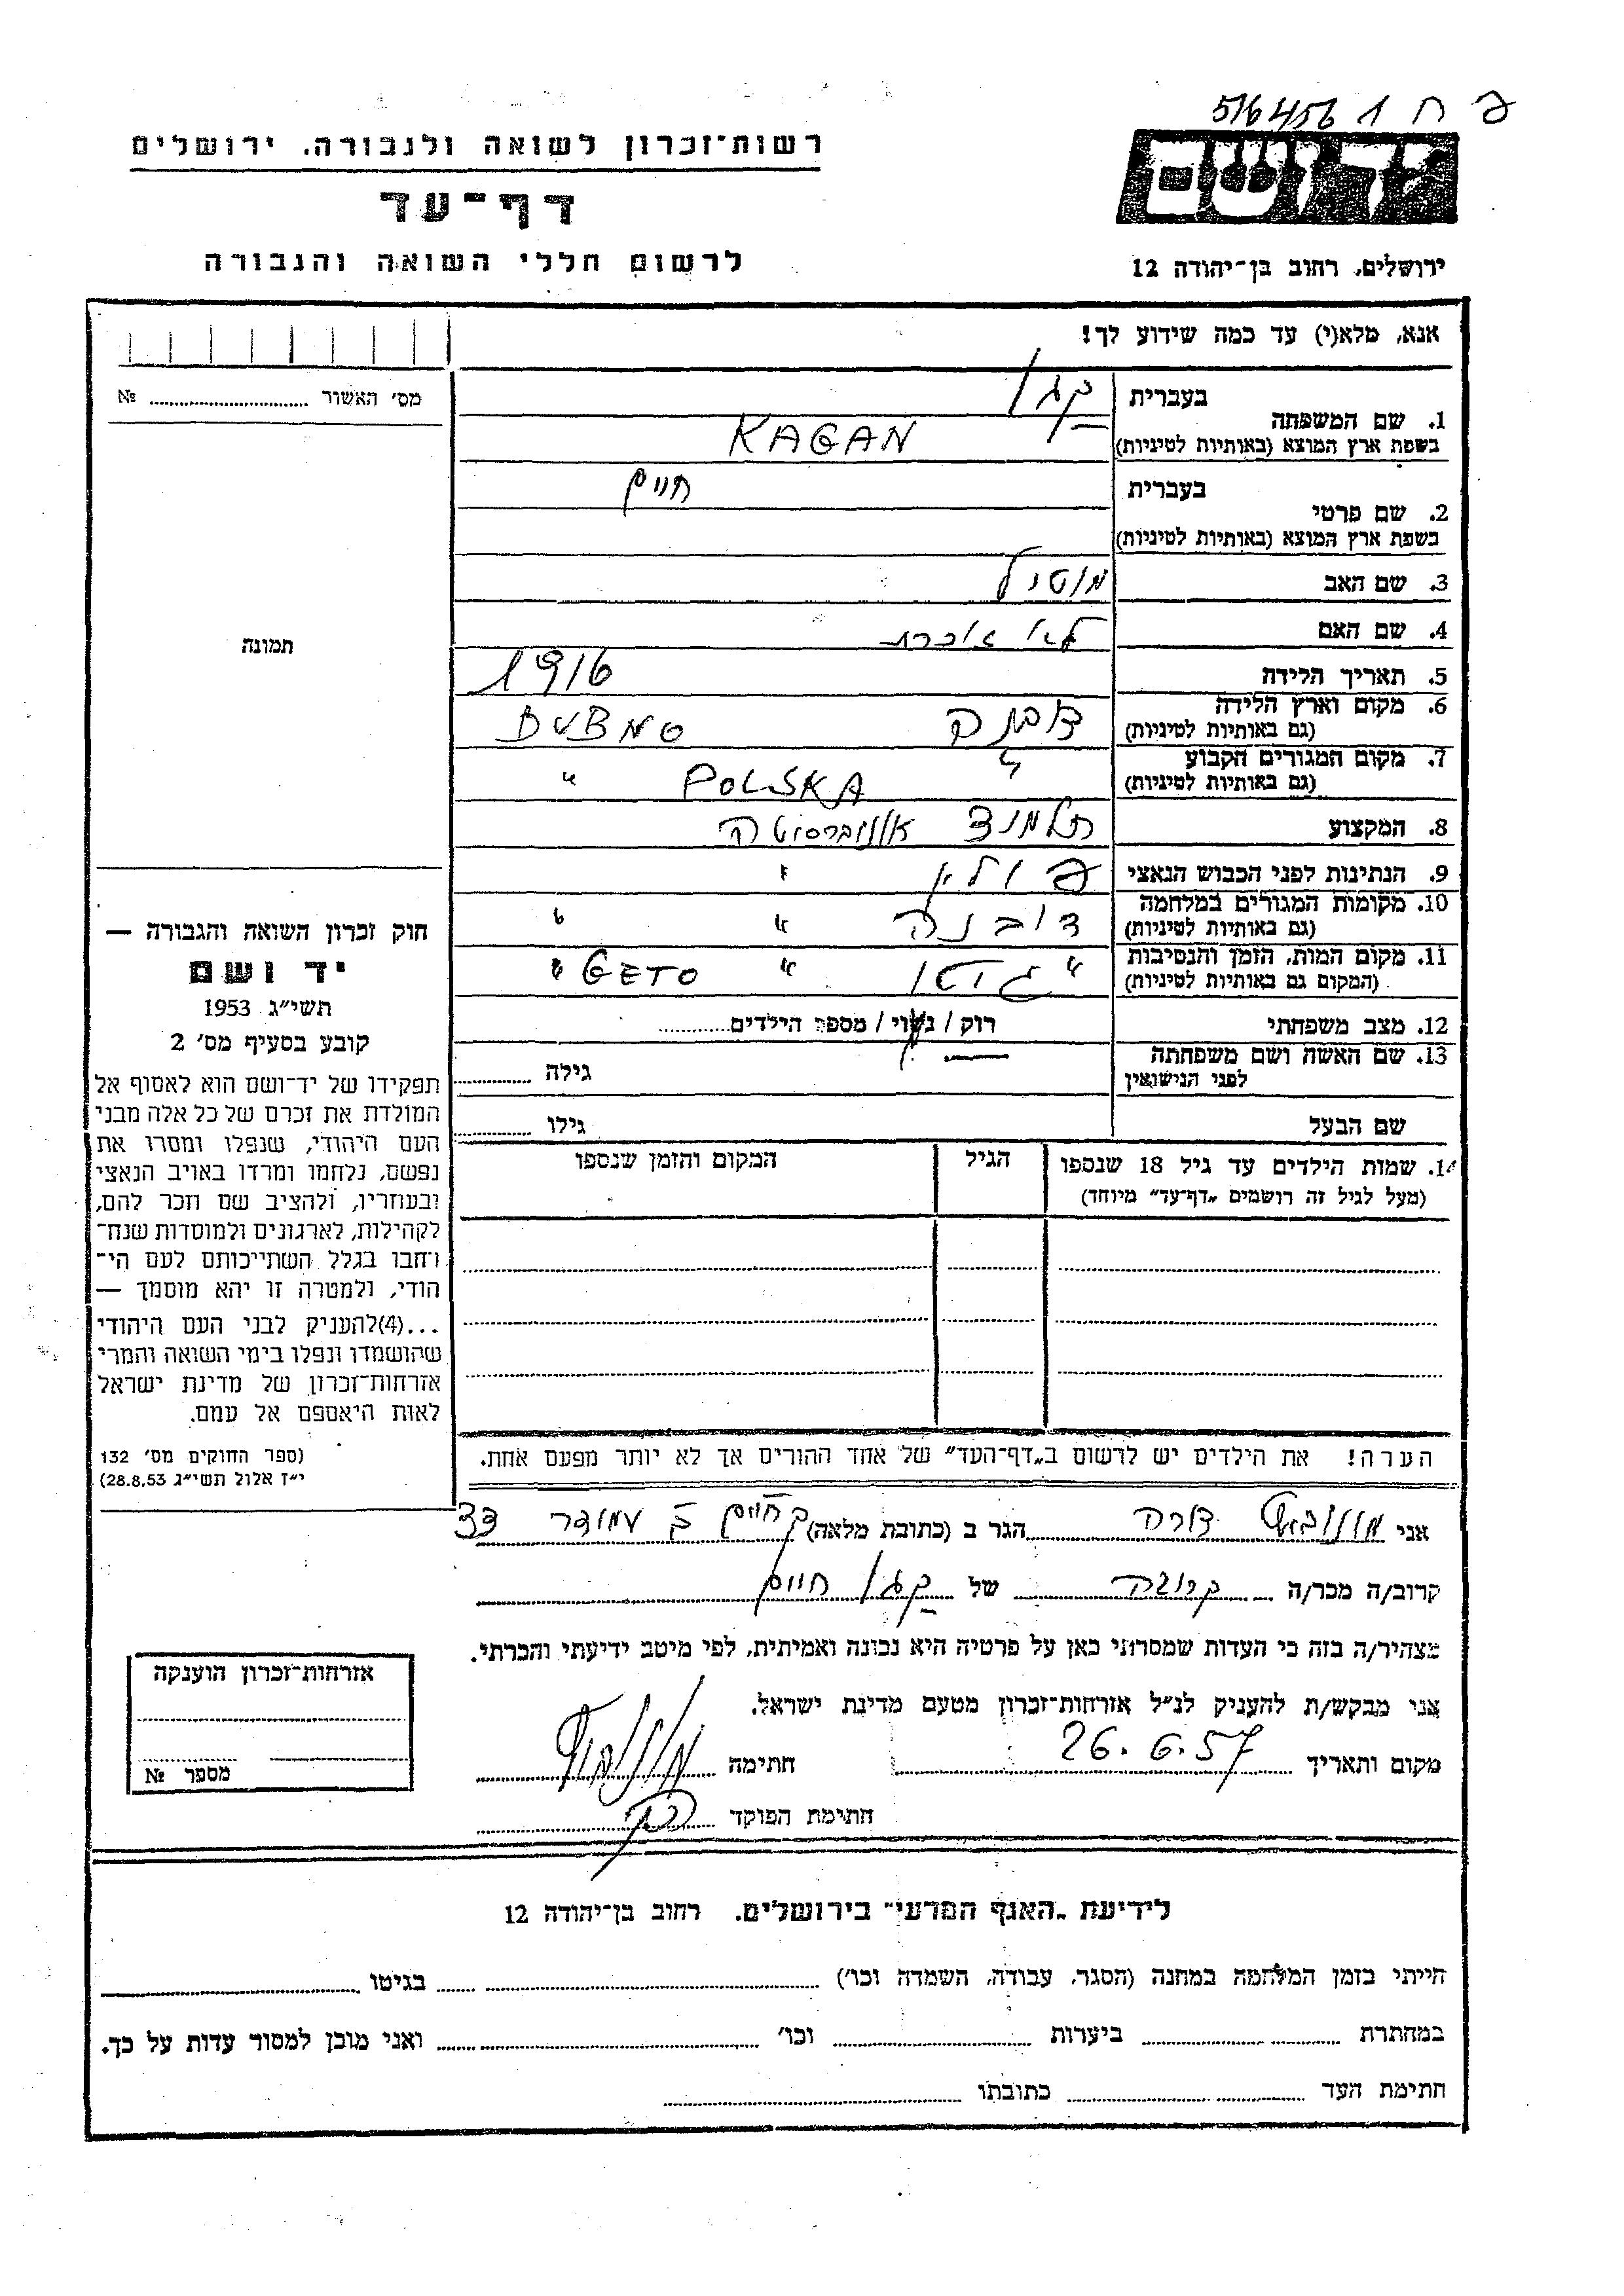 פ ח 1 516456
יד ושם
ירושלים, רחוב בן־יהודה 12
רשות־זכרון לשואה ולגבורה, ירושלים
דף־עד
לרשום חללי השואה והגבורה
אנא, מלא(י) עד כמה שידוע לך!
מס׳ האשור № ....................
1. שם המשפחה
בעברית קגן
בשפת ארץ המוצא (באותיות לטיניות) KAGAN
2. שם פרטי
בעברית חיים
בשפת ארץ המוצא (באותיות לטיניות)
3. שם האב מוטיל
4. שם האם
5. תאריך הלידה 1916
6. מקום וארץ הלידה דובנה DUBNO
(גם באותיות לטיניות)
7. מקום המגורים הקבוע " POLSKA "
(גם באותיות לטיניות)
8. המקצוע תלמיד אוניברסיטה
9. הנתינות לפני הכבוש הנאצי פולין "
10. מקומות המגורים במלחמה דובנה " "
(גם באותיות לטיניות)
11. מקום המות, הזמן והנסיבות " גיטו " GETO "
(המקום גם באותיות לטיניות)
12. מצב משפחתי רוק / נשוי / מספר הילדים............
13. שם האשה ושם משפחתה
לפני הנישואין
גילה ............
שם הבעל גילו ............
14. שמות הילדים עד גיל 18 שנספו הגיל המקום והזמן שנספו
(מעל לגיל זה רושמים „דף־עד״ מיוחד)
הערה! את הילדים יש לרשום ב„דף־העד״ של אחד ההורים אך לא יותר מפעם אחת.
תמונה
חוק זכרון השואה והגבורה —
יד ושם
תשי״ג 1953
קובע בסעיף מס׳ 2
תפקידו של יד־ושם הוא לאסוף אל
המולדת את זכרם של כל אלה מבני
העם היהודי, שנפלו ומסרו את
נפשם, נלחמו ומרדו באויב הנאצי
ובעוזריו, ולהציב שם וזכר להם,
לקהילות, לארגונים ולמוסדות שנח־
רחבו בגלל השתייכותם לעם הי־
הודי, ולמטרה זו יהא מוסמך —
...(4)להעניק לבני העם היהודי
שהושמדו ונפלו בימי השואה והמרי
אזרחות־זכרון של מדינת ישראל
לאות היאספם אל עמם.
(ספר החוקים מס׳ 132
י״ז אלול תשי״ג 28.8.53)
אני דורה הגר ב (כתובת מלאה) ק חיים
קרוב/ה מכר/ה קרובה של קגן חיים
מצהיר/ה בזה כי העדות שמסרתי כאן על פרטיה היא נכונה ואמיתית, לפי מיטב ידיעתי והכרתי.
אני מבקש/ת להעניק לנ״ל אזרחות־זכרון מטעם מדינת ישראל.
מקום ותאריך 26.6.57 חתימה
חתימת הפוקד
אזרחות־זכרון הוענקה
מספר №
לידיעת „האגף המדעי״ בירושלים, רחוב בן־יהודה 12
הייתי בזמן המלחמה במחנה (הסגר, עבודה, השמדה וכו׳) ............ בגיטו ............
במחתרת ............ ביערות ............ וכו׳ ............ ואני מוכן למסור עדות על כך.
חתימת העד ............ כתובתו ............